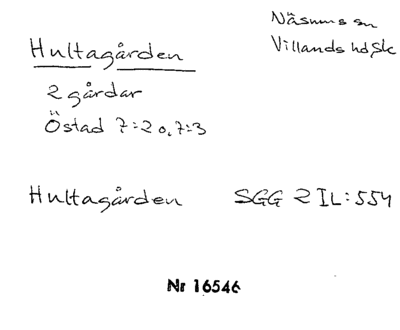 Hultagården
Näsums sn
Villands hd, Sk
2 gårdar
Östad 7:2 o. 7:3
Hultagården SGG 2 IL:554
Nr 16546